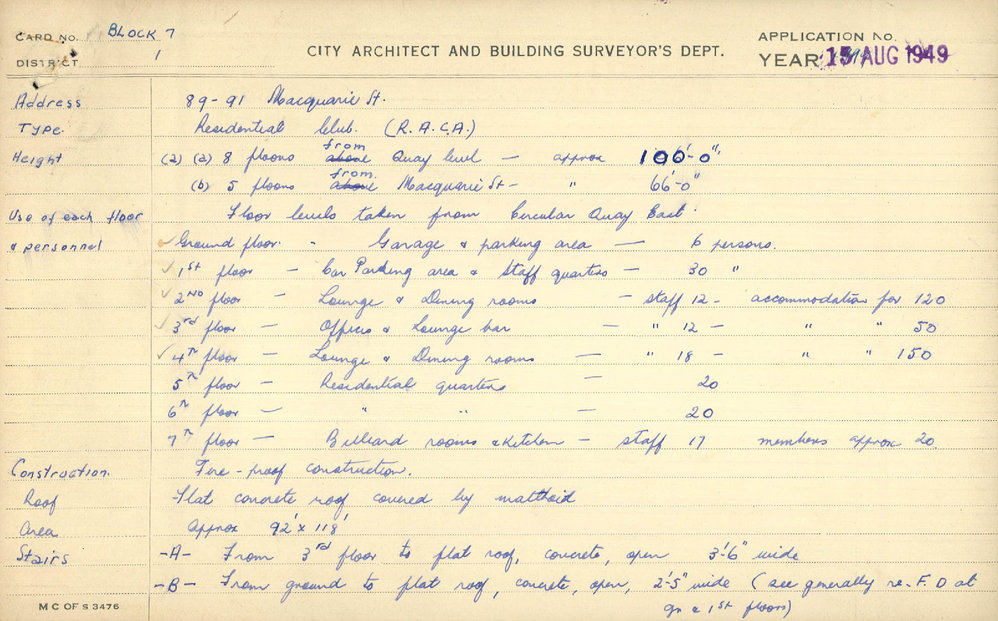 CARD NO. BLOCK 7
DISTRICT 1
CITY ARCHITECT AND BUILDING SURVEYOR'S DEPT.
APPLICATION NO.
YEAR 15 AUG 1949
Address 89-91 Macquarie St.
Type. Residential Club. (R.A.C.A.)
Height (2) (a) 8 floors above from Quay level — approx 100'-0"
(b) 5 floors above from Macquarie St — " 66'-0"
Use of each floor Floor levels taken from Circular Quay East.
& personnel Ground floor. - Garage & parking area — 6 persons.
1st floor — Car Parking area & Staff quarters — 30 "
2nd floor — Lounge & Dining rooms — staff 12 — accommodation for 120
3rd floor — Offices & Lounge bar — " 12 — " " 50
4th floor — Lounge & Dining rooms — " 18 — " " 150
5th floor — Residential quarters — 20
6th floor — " " — 20
7th floor — Billiard rooms & Kitchen — staff 17 members approx 20.
Construction. Fire-proof construction.
Roof Flat concrete roof covered by malthoid
Area Approx 92' x 118'
Stairs -A- From 3rd floor to flat roof, concrete, open 3'-6" wide
-B- From ground to flat roof, concrete, open, 2'-5" wide (see generally re-F.D at
gr & 1st floors)
M C OF S 3476